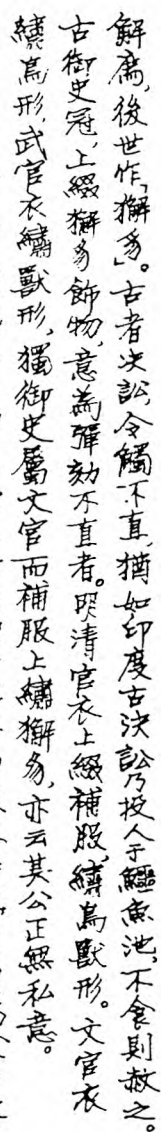 解廌，後世作「獬豸」。古者決訟，令觸不直，猶如印度古決訟乃投人于鱷魚池，不食則赦之。
古御史冠，上綴獬豸飾物，意為彈劾不直者。明清官衣上綴補服，繡鳥獸形。文官衣
繡鳥形，武官衣繡獸形，獨御史屬文官而補服上繡獬豸，亦云其公正無私意。